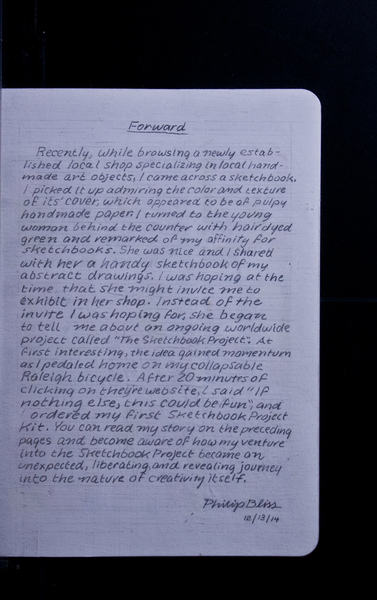 Forward
Recently, while browsing a newly estab-
lished local shop specializing in local hand-
made art objects, I came across a sketchbook.
I picked it up admiring the color and texture
of its' cover, which appeared to be of pulpy
handmade paper. I turned to the young
woman behind the counter with hair dyed
green and remarked of my affinity for
sketchbooks. She was nice and I shared
with her a handy sketchbook of my
abstract drawings. I was hoping at the
time that she might invite me to
exhibit in her shop. Instead of the
invite I was hoping for, she began
to tell me about an ongoing worldwide
project called "The Sketchbook Project". At
first interesting, the idea gained momentum
as I pedaled home on my collapsable
Raleigh bicycle. After 20 minutes of
clicking on they're website, I said "If
nothing else, this could be fun", and
I ordered my first Sketchbook Project
Kit. You can read my story on the preceding
pages and become aware of how my venture
into the Sketchbook Project became an
unexpected, liberating, and revealing journey
into the nature of creativity itself.
Philip Bliss
12/13/14